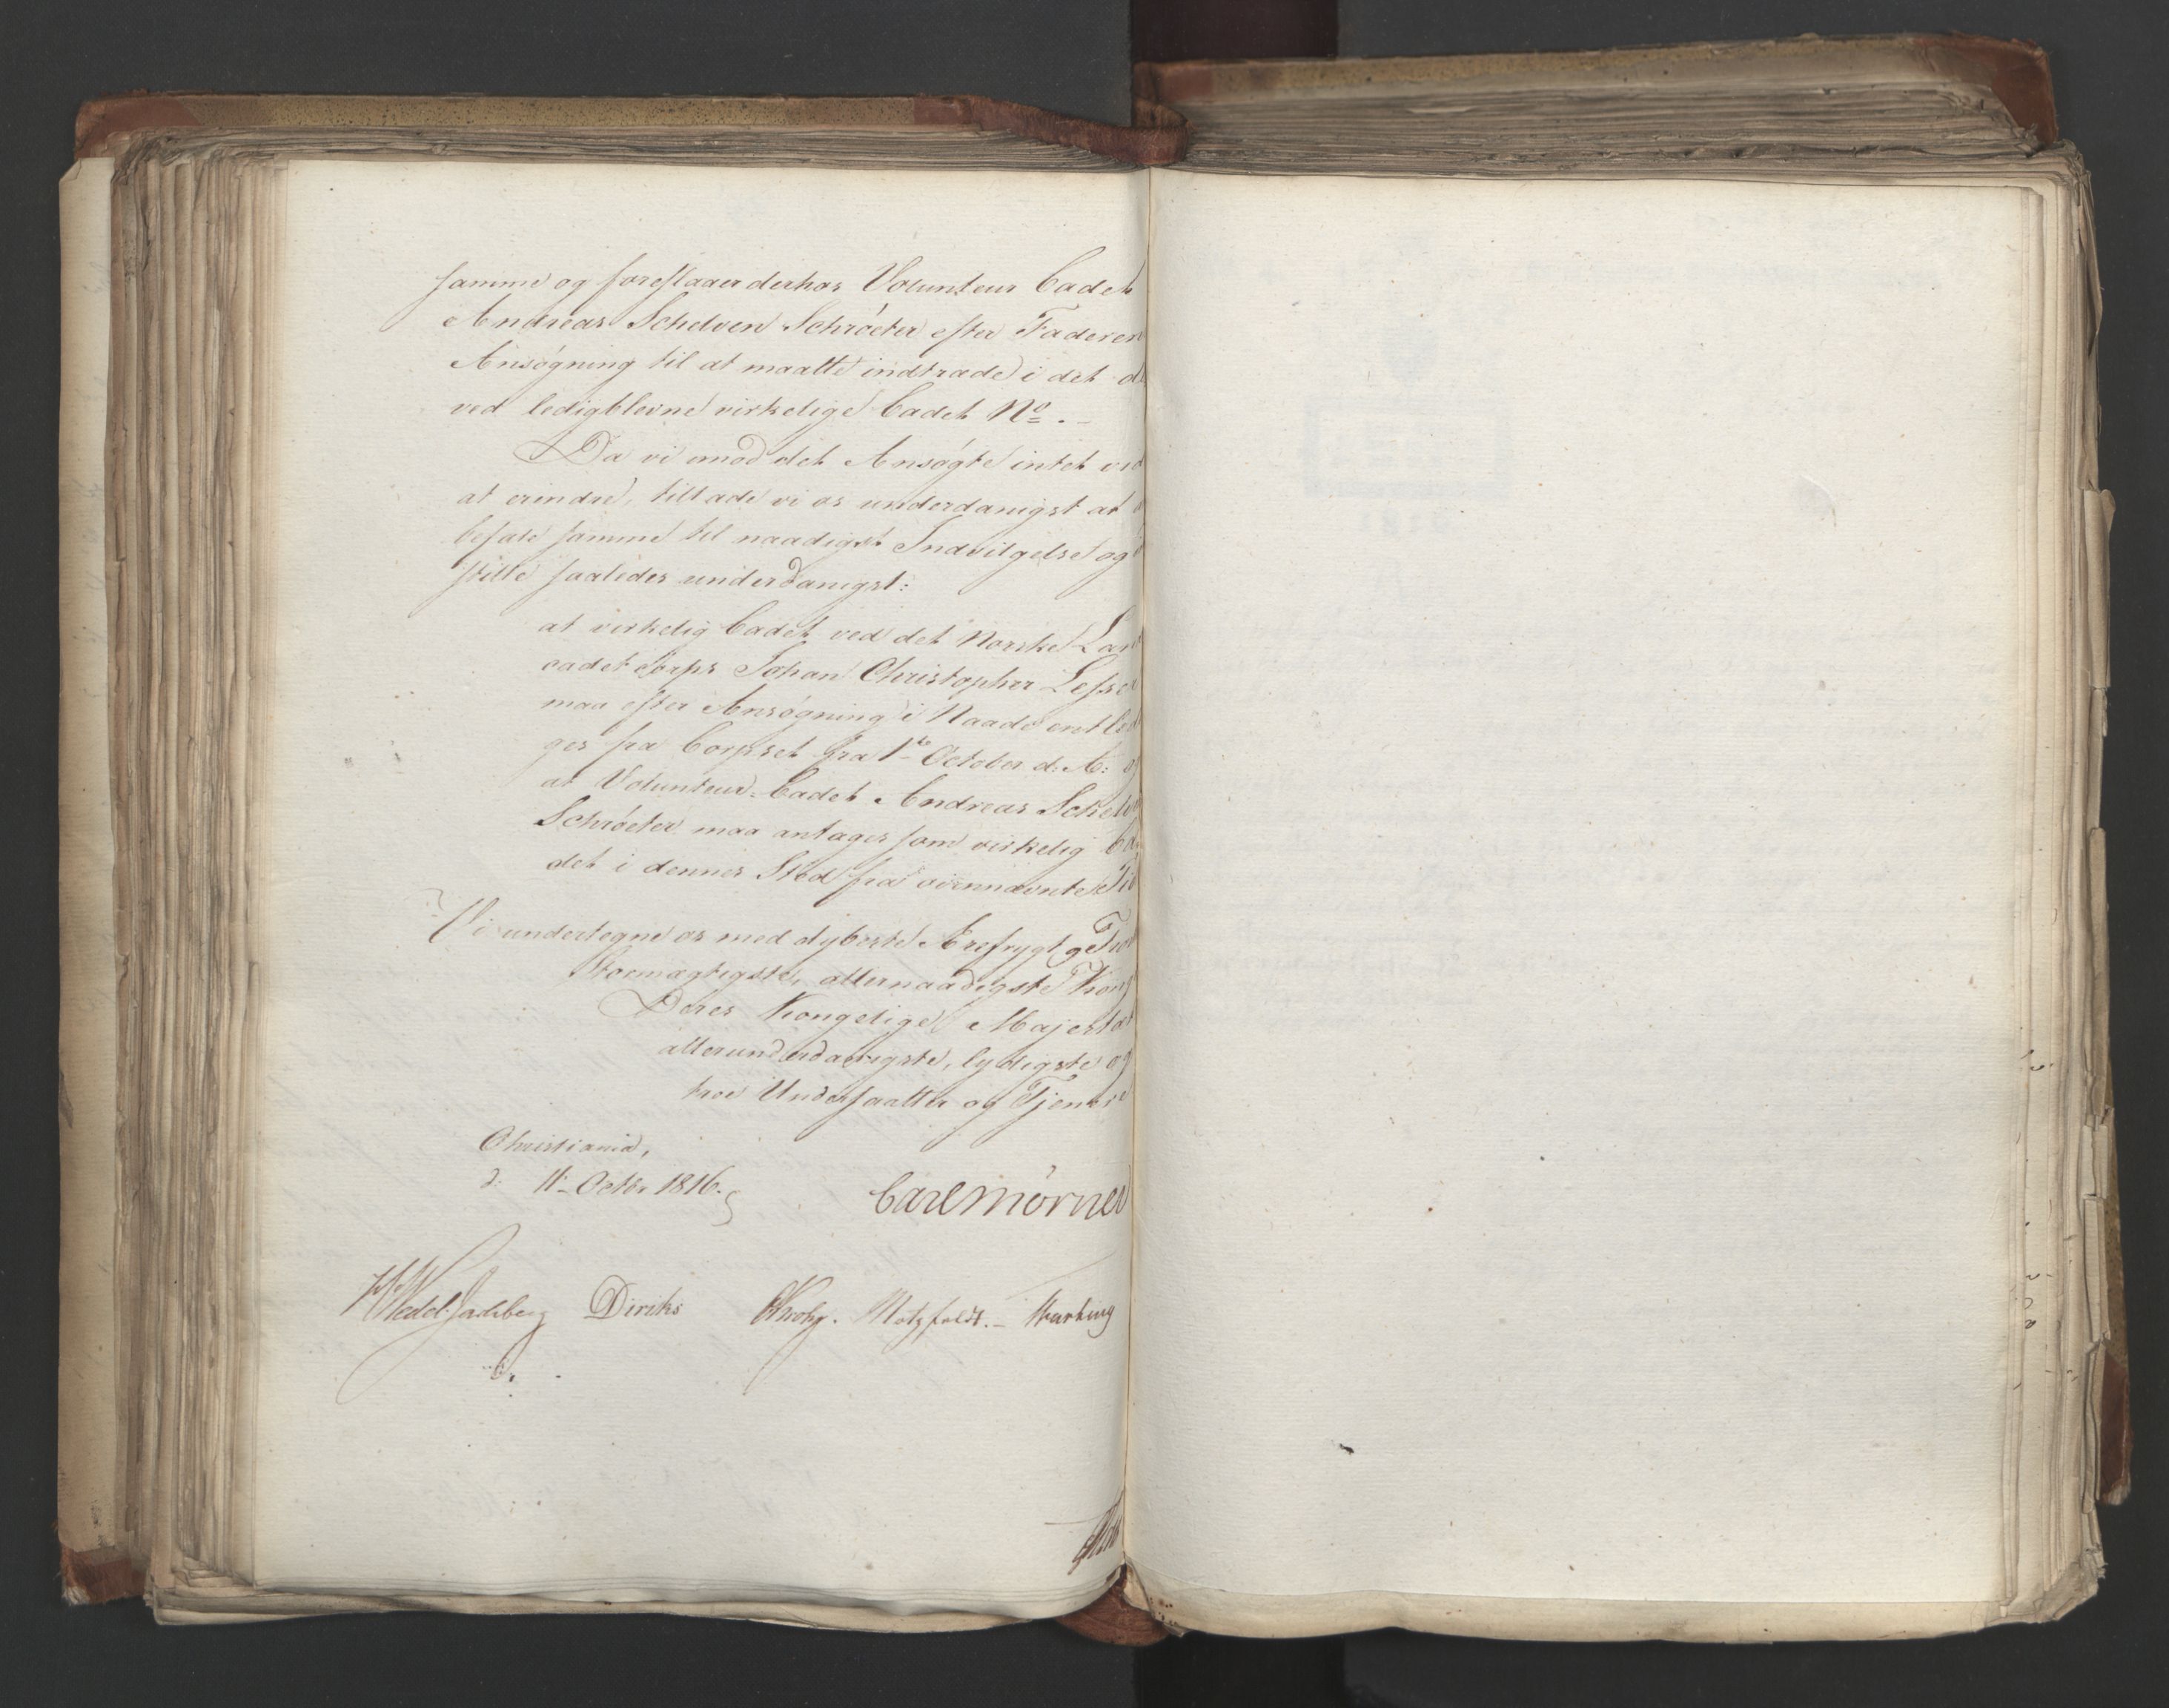 samme og foreslaaer derhos Volunteur Cadet
Andreas Schelven Schröeter efter Faderen
Ansøgning til at maatte indtræde i det d
ved ledigblevne virkelige Cadet No. -
Da vi imod det Ansøgte intet ved
at erindre, tillade vi os underdanigst at
befale samme til naadigst Indvilgelse og
stille saaledes underdanigst:
at virkelig Cadet ved det Norske Land
cadet Corps Johan Christopher Lesser
maa efter Ansøgning i Naade entled
ges fra Corpset fra 1ste October d: A: og
at Volunteur-Cadet Andreas Schelv
Schröeter maa antages som virkelig Ca
det i dennes Sted fra ovennævnte Tid
Vi undertegne os med dybeste Ærefrygt
Stormægtigste, allernaadigste Kong
Deres Kongelige Majestæt
allerunderdanigste, lydigste og
troe Undersaatter og Tjenere
Christiania,
d: 11te Octbr 1816.
Carl Mörner
Wedel-Jarlsberg Diriks Krohg. Motzfeldt. -